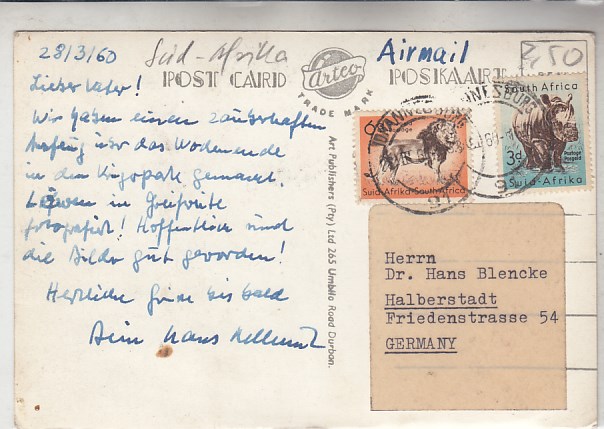 28/3/60
Süd-Afrika
Airmail
2,50
POST CARD
Artco
TRADE MARK
POSKAART
Lieber Vater!
Wir haben einen zauberhaften
Ausflug über das Wochenende
in den Krügerpark gemacht.
Löwen in
fotografiert! Hoffentlich sind
die Bilder gut geworden!
Herzliche Grüße bis bald
Dein Hans Hellmut
Art Publishers (Pty) Ltd 265 Umbilo Road Durban.
6d
Postage
Suid-Afrika-South-Africa
JOHANNESBURG
South Africa
3d
Postage
Posgeld
Suid-Afrika
Herrn
Dr. Hans Blencke
Halberstadt
Friedenstrasse 54
GERMANY